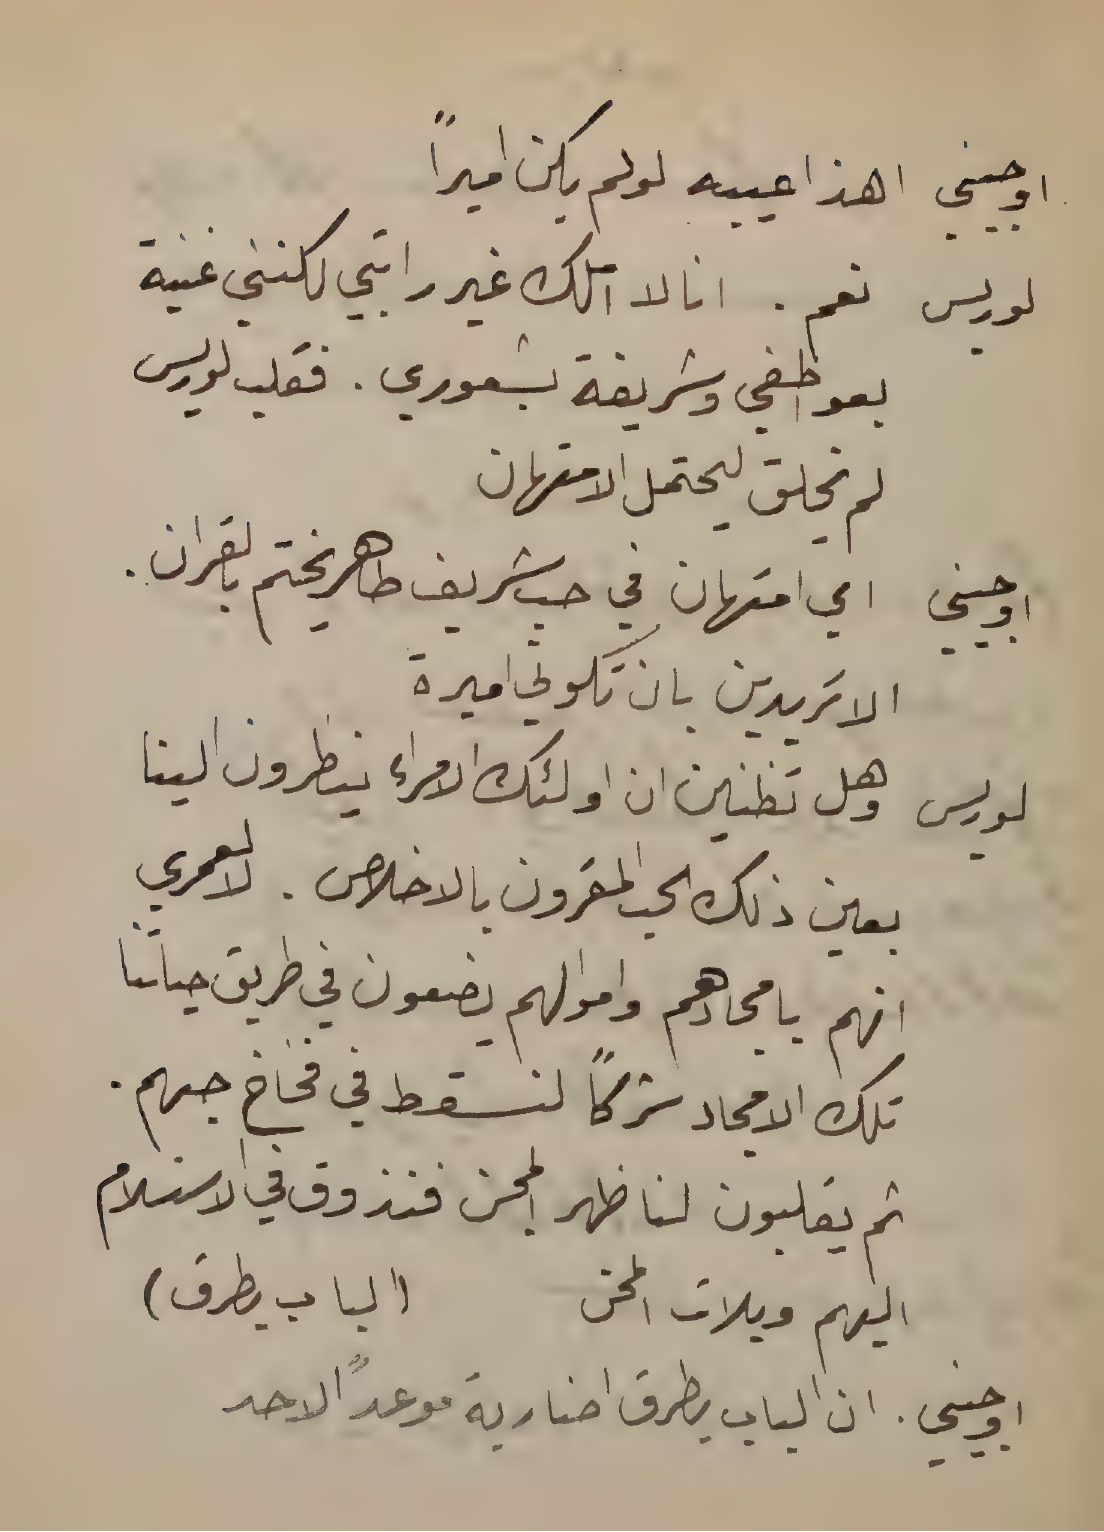 اوجيني اهذا عيبه لو لم يكن اميراً
لوريس نعم . انا لا املك غير راتبي لكنني غنية
بعواطفي وشريفة بشعوري . فقلب لوريس
لم يخلق ليحتمل الامتهان
اوجيني اي امتهان في حب شريف طاهر يختم بالقران .
الا تريدين بان تكوني اميرة
لوريس وهل تظنين ان اولئك الامراء ينظرون الينا
بعين ذلك الحب المقرون بالاخلاص . لا لعمري
انهم بامجادهم واموالهم يضعون في طريق حياتنا
تلك الامجاد شركاً لنسقط في فخاخ حبهم .
ثم يقلبون لنا ظهر المجن فنذوق في الاستسلام
اليهم ويلات المحن (الباب يطرق)
اوجيني . ان الباب يطرق اضاربة موعداً لاحد